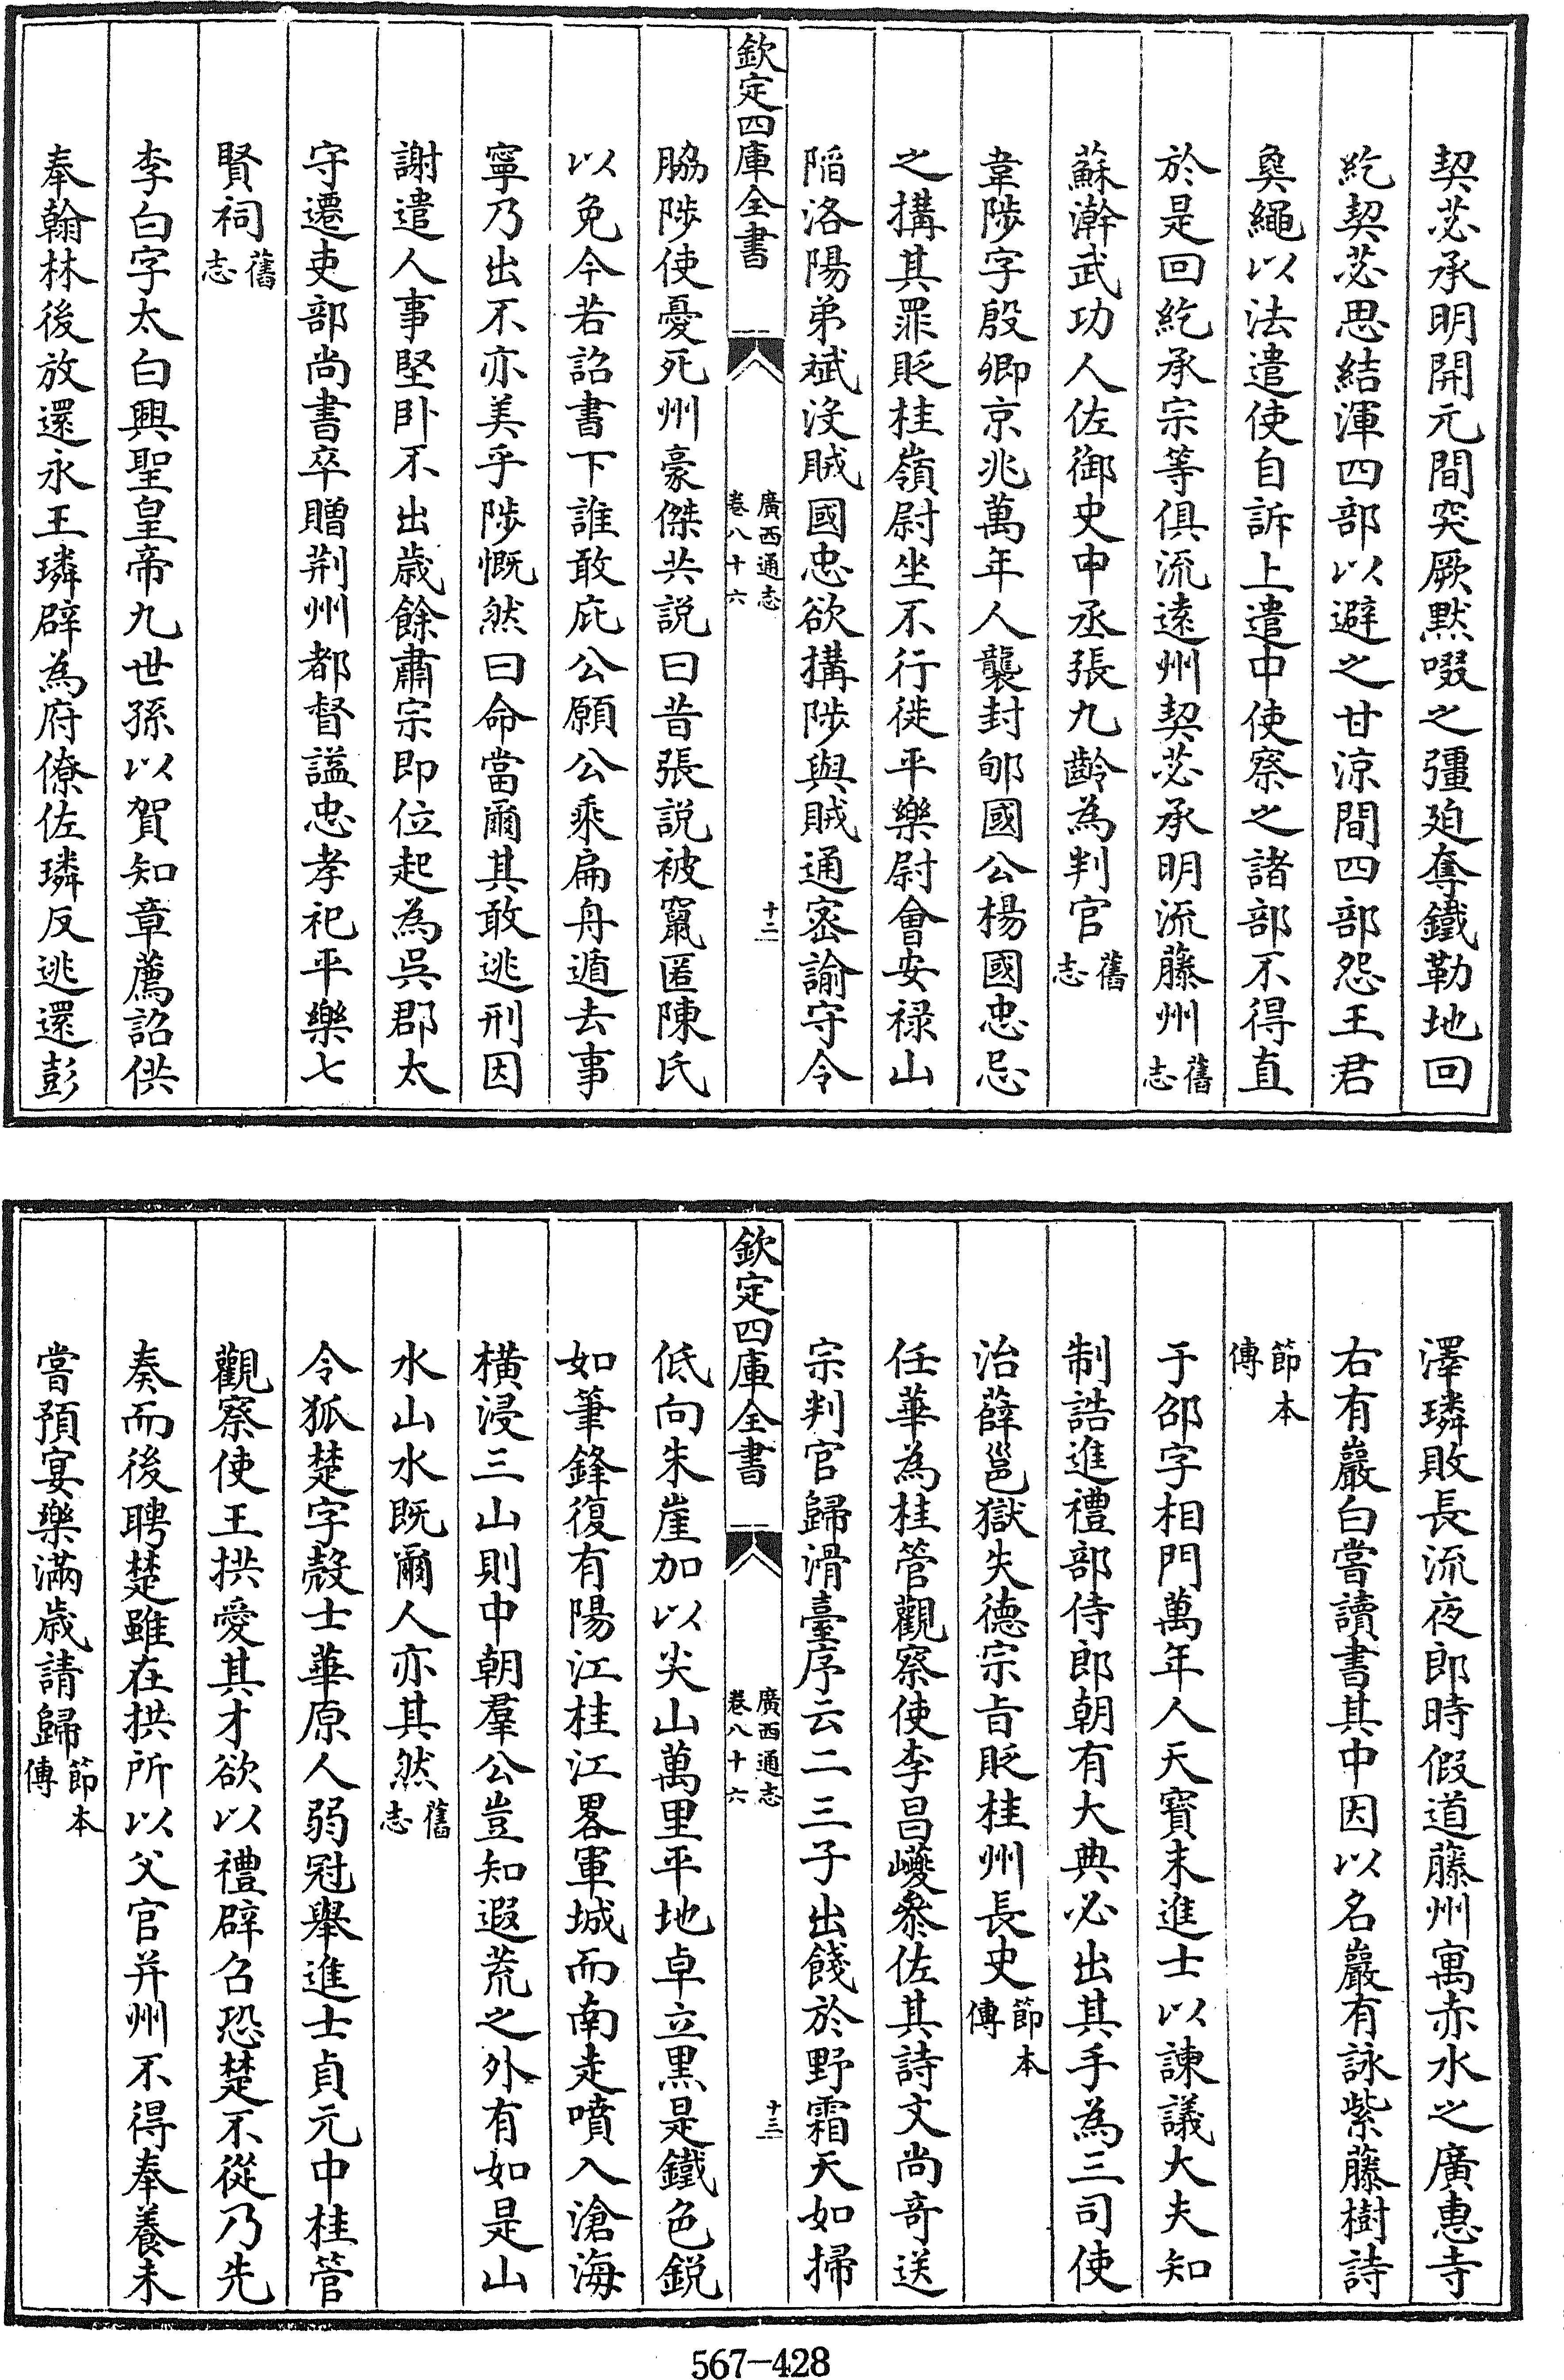 契苾承明開元間突厥默啜之彊廹奪鐵勒地回
紇契苾思結渾四部以避之甘涼間四部怨王君
㚟繩以法遣使自訴上遣中使察之諸部不得直
於是回紇承宗等俱流遠州契苾承明流藤州舊志
蘇瀚武功人佐御史中丞張九齡為判官舊志
韋陟字殷卿京兆萬年人襲封郇國公楊國忠忌
之搆其罪貶桂嶺尉坐不行徙平樂尉會安禄山
陷洛陽弟斌沒賊國忠欲搆陟與賊通密諭守令
欽定四庫全書
廣西通志
卷八十六
十二
脇陟使憂死州豪傑共説曰昔張説被竄匿陳氏
以免今若詔書下誰敢庇公願公乘扁舟遁去事
寧乃出不亦美乎陟慨然曰命當爾其敢逃刑因
謝遣人事堅卧不出歳餘肅宗即位起為呉郡太
守遷吏部尚書卒贈荆州都督謚忠孝祀平樂七
賢祠舊志
李白字太白興聖皇帝九世孫以賀知章薦詔供
奉翰林後放還永王璘辟為府僚佐璘反逃還彭
澤璘敗長流夜郎時假道藤州寓赤水之廣惠寺
右有巖白嘗讀書其中因以名巖有詠紫藤樹詩
節本傳
于邵字相門萬年人天寶末進士以諫議大夫知
制誥進禮部侍郎朝有大典必出其手為三司使
治薛邕獄失德宗旨貶桂州長史節本傳
任華為桂管觀察使李昌巙叅佐其詩文尚竒送
宗判官歸滑臺序云二三子出餞於野霜天如掃
欽定四庫全書
廣西通志
卷八十六
十三
低向朱崖加以尖山萬里平地卓立黒是鐵色鋭
如筆鋒復有陽江桂江畧軍城而南走噴入滄海
横浸三山則中朝羣公豈知遐荒之外有如是山
水山水既爾人亦其然舊志
令狐楚字殻士華原人弱冠舉進士貞元中桂管
觀察使王拱愛其才欲以禮辟召恐楚不從乃先
奏而後聘楚雖在拱所以父官并州不得奉養未
嘗預宴樂滿歳請歸節本傳
567-428